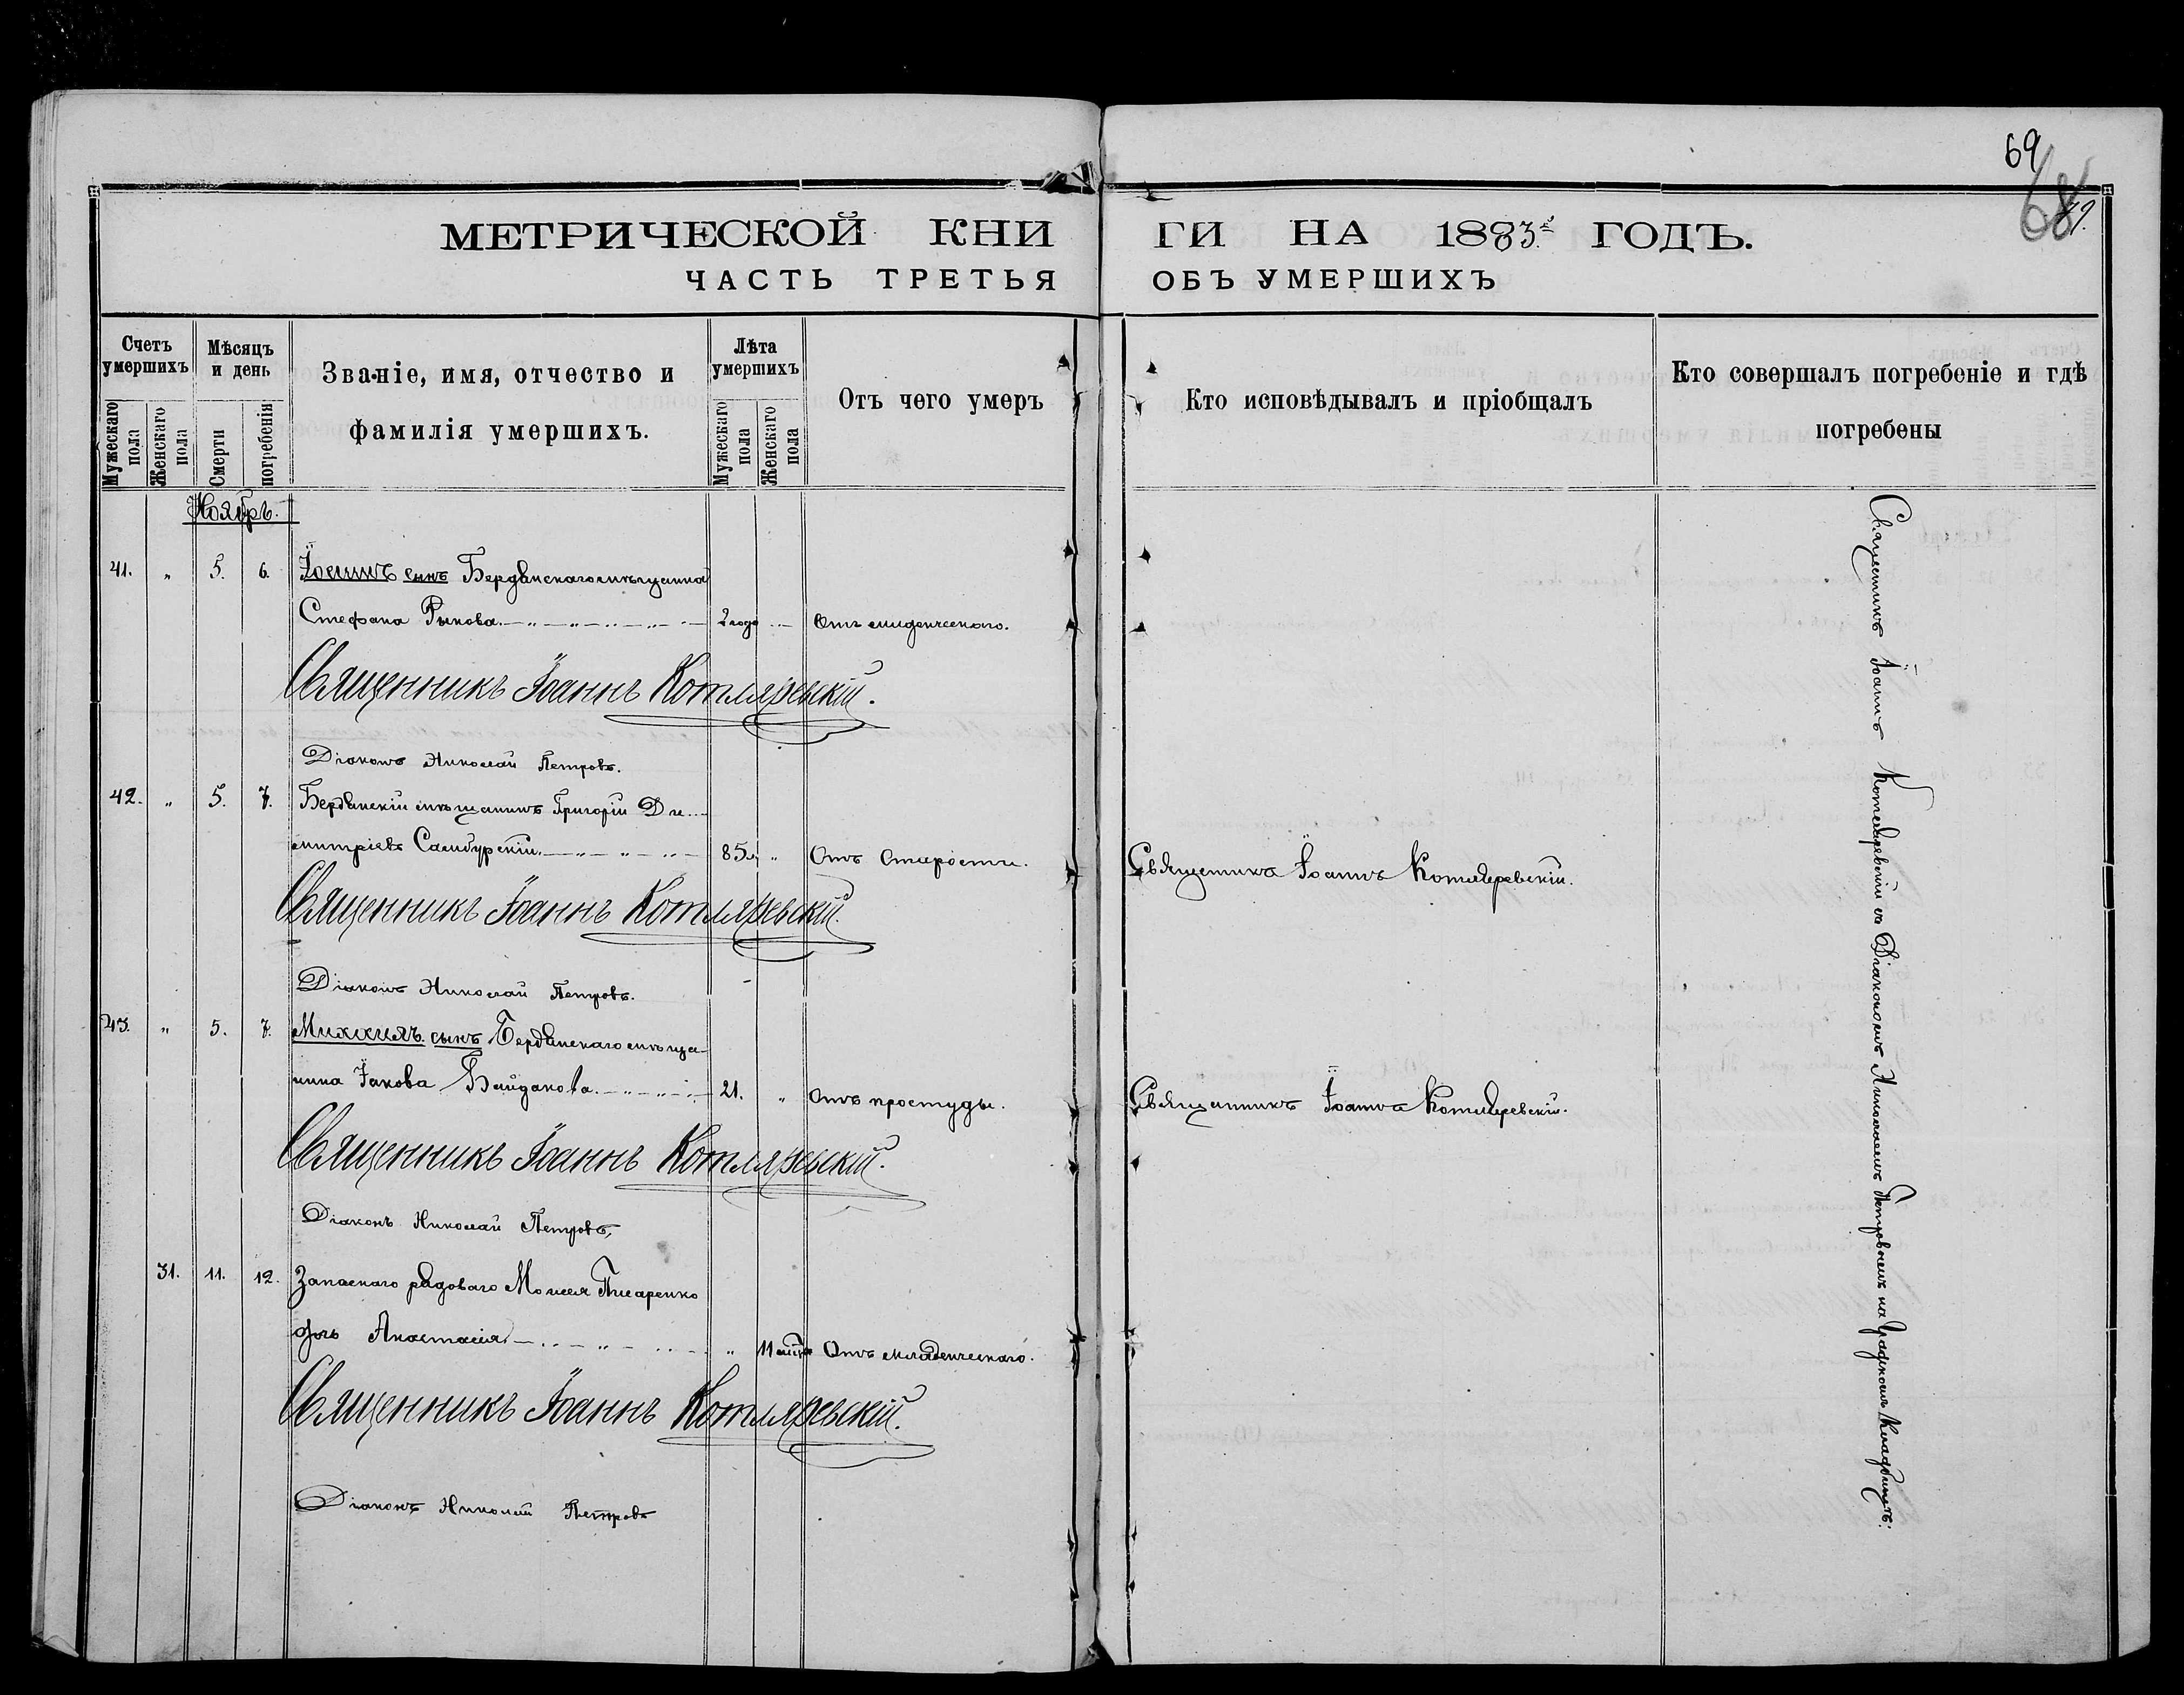 69
68
МЕТРИЧЕСКОЙ КНИГИ НА 1883й ГОДЪ.
ЧАСТЬ ТРЕТЬЯ ОБЪ УМЕРШИХЪ
Счетъ умершихъ
Мужескаго пола
Женскаго пола
Мѣсяцъ и день
Смерти
погребенія
Званіе, имя, отчество и
фамилія умершихъ.
Лѣта умершихъ
Мужескаго пола
Женскаго пола
Отъ чего умеръ
Кто исповѣдывалъ и пріобщалъ
Кто совершалъ погребеніе и гдѣ
погребены
Ноябрь.
41. „ 5. 6. сынъ Бердянскаго мѣщанина
Стефана Рыкова. 2 года Отъ младенческаго.
Священникъ Іоаннъ Котляревскій.
Діаконъ Николай Петровъ.
42. „ 5. 7. Бердянскій мѣщанинъ Григорій Ди-
митріевъ Самбурскій. 85л. „ Отъ старости. Священникъ Іоаннъ Котляревскій.
Священникъ Іоаннъ Котляревскій.
Діаконъ Николай Петровъ.
43. „ 5. 7. Михаилъ сынъ Бердянскаго мѣща-
нина Іакова Байдакова. 21. „ Отъ простуды. Священникъ Іоаннъ Котляревскій.
Священникъ Іоаннъ Котляревскій.
Діаконъ Николай Петровъ.
31. 11. 12. Запаснаго рядоваго Моисея Писаренко
дочь Анастасія. „ 11 Отъ младенческаго.
Священникъ Іоаннъ Котляревскій.
Діаконъ Николай Петровъ
Священникъ Іоаннъ Котляревскій съ Діакономъ Николаемъ Петровымъ на Градскомъ Кладбищѣ.